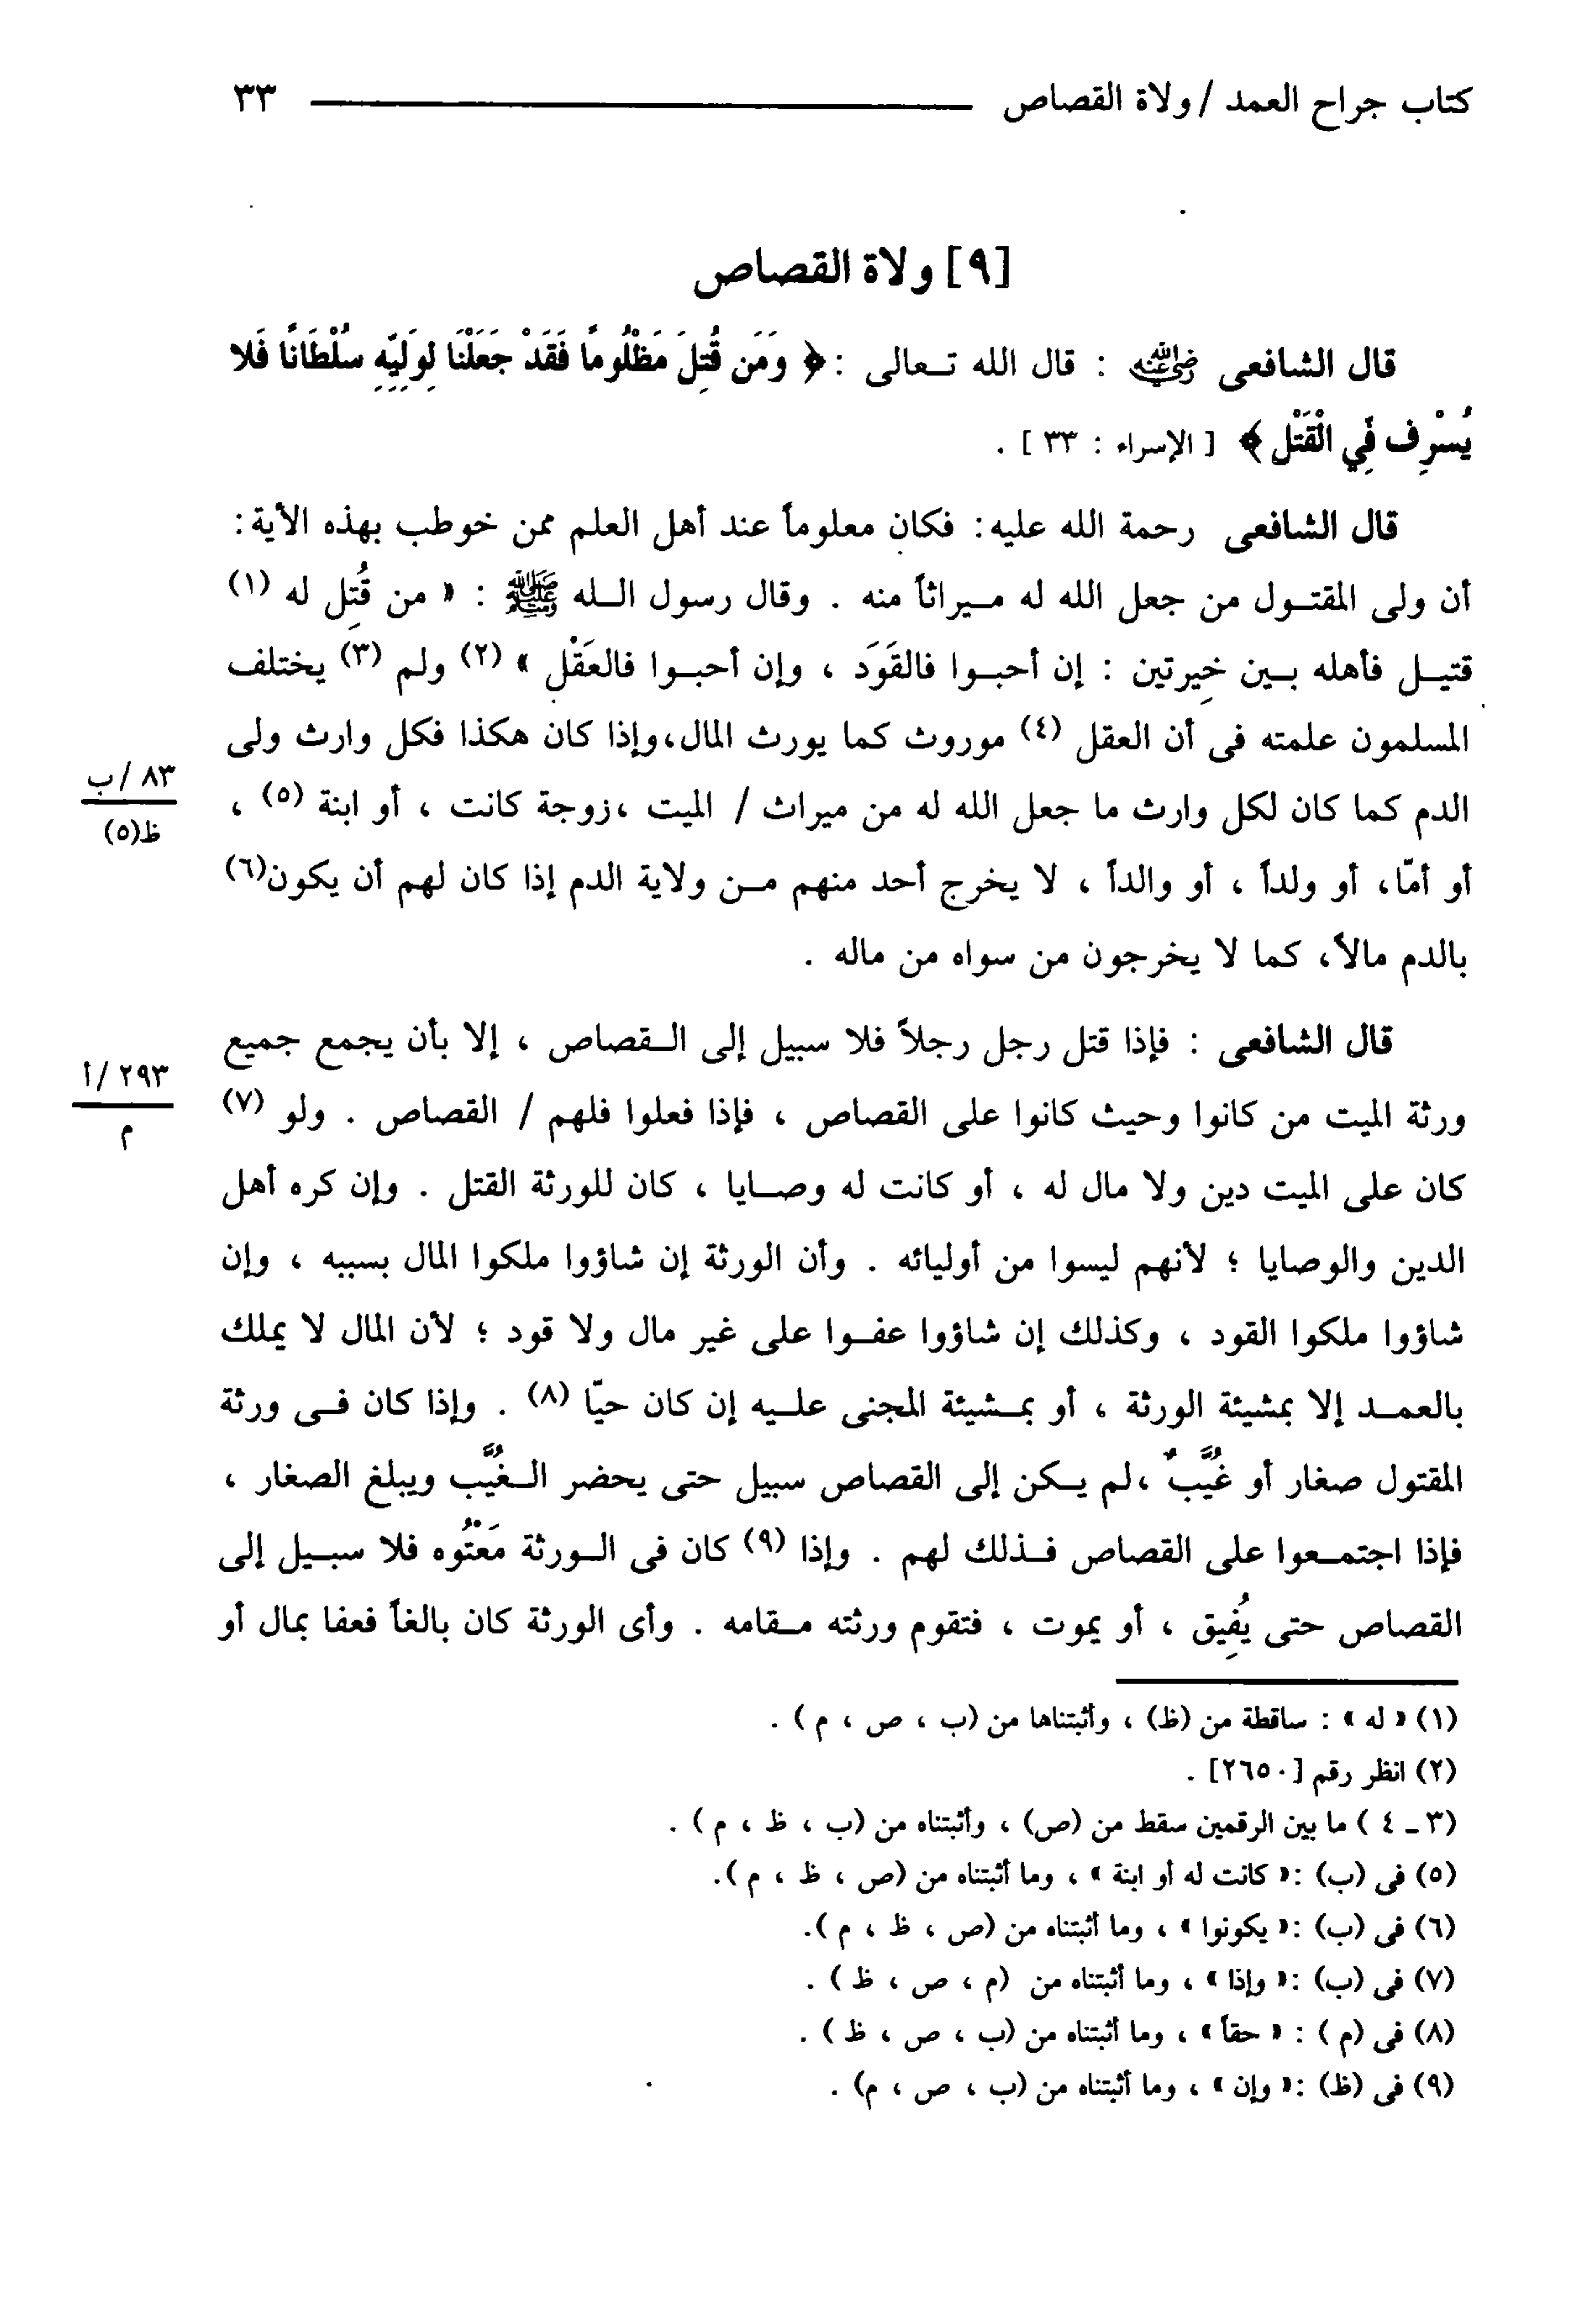 كتاب جراح العمد / ولاة القصاص ٣٣
[٩] ولاة القصاص
قال الشافعى رضي الله عنه : قال الله تـعالى : ﴿ وَمَن قُتِلَ مَظْلُومًا فَقَدْ جَعَلْنَا لِوَلِيِّهِ سُلْطَانًا فَلا
يُسْرِف فِّي الْقَتْلِ ﴾ [ الإسراء : ٣٣ ] .
قال الشافعى رحمة الله عليه : فكان معلوماً عند أهل العلم ممن خوطب بهذه الآية :
أن ولى المقتـول من جعل الله له مـيراثاً منه . وقال رسول الـله ﷺ : « من قُتِل له (١)
قتيـل فأهله بـين خِيرتين : إن أحبـوا فالقَوَد ، وإن أحبـوا فالعَقْل » (٢) ولم (٣) يختلف
المسلمون علمته فى أن العقل (٤) موروث كما يورث المال، وإذا كان هكذا فكل وارث ولى
الدم كما كان لكل وارث ما جعل الله له من ميراث / الميت ، زوجة كانت ، أو ابنة (٥) ،
٨٣ / ب
ظ(٥)
أو أمّا، أو ولداً ، أو والداً ، لا يخرج أحد منهم مـن ولاية الدم إذا كان لهم أن يكون(٦)
بالدم مالاً، كما لا يخرجون من سواه من ماله .
قال الشافعى : فإذا قتل رجل رجلاً فلا سبيل إلى الـقصاص ، إلا بأن يجمع جميع
٢٩٣ / أ
م
ورثة الميت من كانوا وحيث كانوا على القصاص ، فإذا فعلوا فلهم / القصاص . ولو (٧)
كان على الميت دين ولا مال له ، أو كانت له وصـايا ، كان للورثة القتل . وإن كره أهل
الدين والوصايا ؛ لأنهم ليسوا من أوليائه . وأن الورثة إن شاؤوا ملكوا المال بسببه ، وإن
شاؤوا ملكوا القود ، وكذلك إن شاؤوا عفـوا على غير مال ولا قود ؛ لأن المال لا يملك
بالعمـد إلا بمشيئة الورثة ، أو بمـشيئة المجنى علـيه إن كان حيّا (٨) . وإذا كان فـى ورثة
المقتول صغار أو غُيَّبٌ ، لم يـكن إلى القصاص سبيل حتى يحضر الـغُيَّب ويبلغ الصغار ،
فإذا اجتمـعوا على القصاص فـذلك لهم . وإذا (٩) كان فى الـورثة مَعْتُوه فلا سبـيل إلى
القصاص حتى يُفِيق ، أو يموت ، فتقوم ورثته مـقامه . وأى الورثة كان بالغاً فعفا بمال أو
(١) « له » : ساقطة من (ظ) ، وأثبتناها من (ب ، ص ، م ) .
(٢) انظر رقم [٢٦٥٠] .
(٣ ـ ٤ ) ما بين الرقمين سقط من (ص) ، وأثبتناه من (ب ، ظ ، م ) .
(٥) فى (ب) :« كانت له أو ابنة » ، وما أثبتناه من (ص ، ظ ، م ).
(٦) فى (ب) :« يكونوا » ، وما أثبتناه من (ص ، ظ ، م ).
(٧) فى (ب) :« وإذا » ، وما أثبتناه من (م ، ص ، ظ ) .
(٨) فى (م ) : « حقاً » ، وما أثبتناه من (ب ، ص ، ظ ) .
(٩) فى (ظ) :« وإن » ، وما أثبتناه من (ب ، ص ، م) .